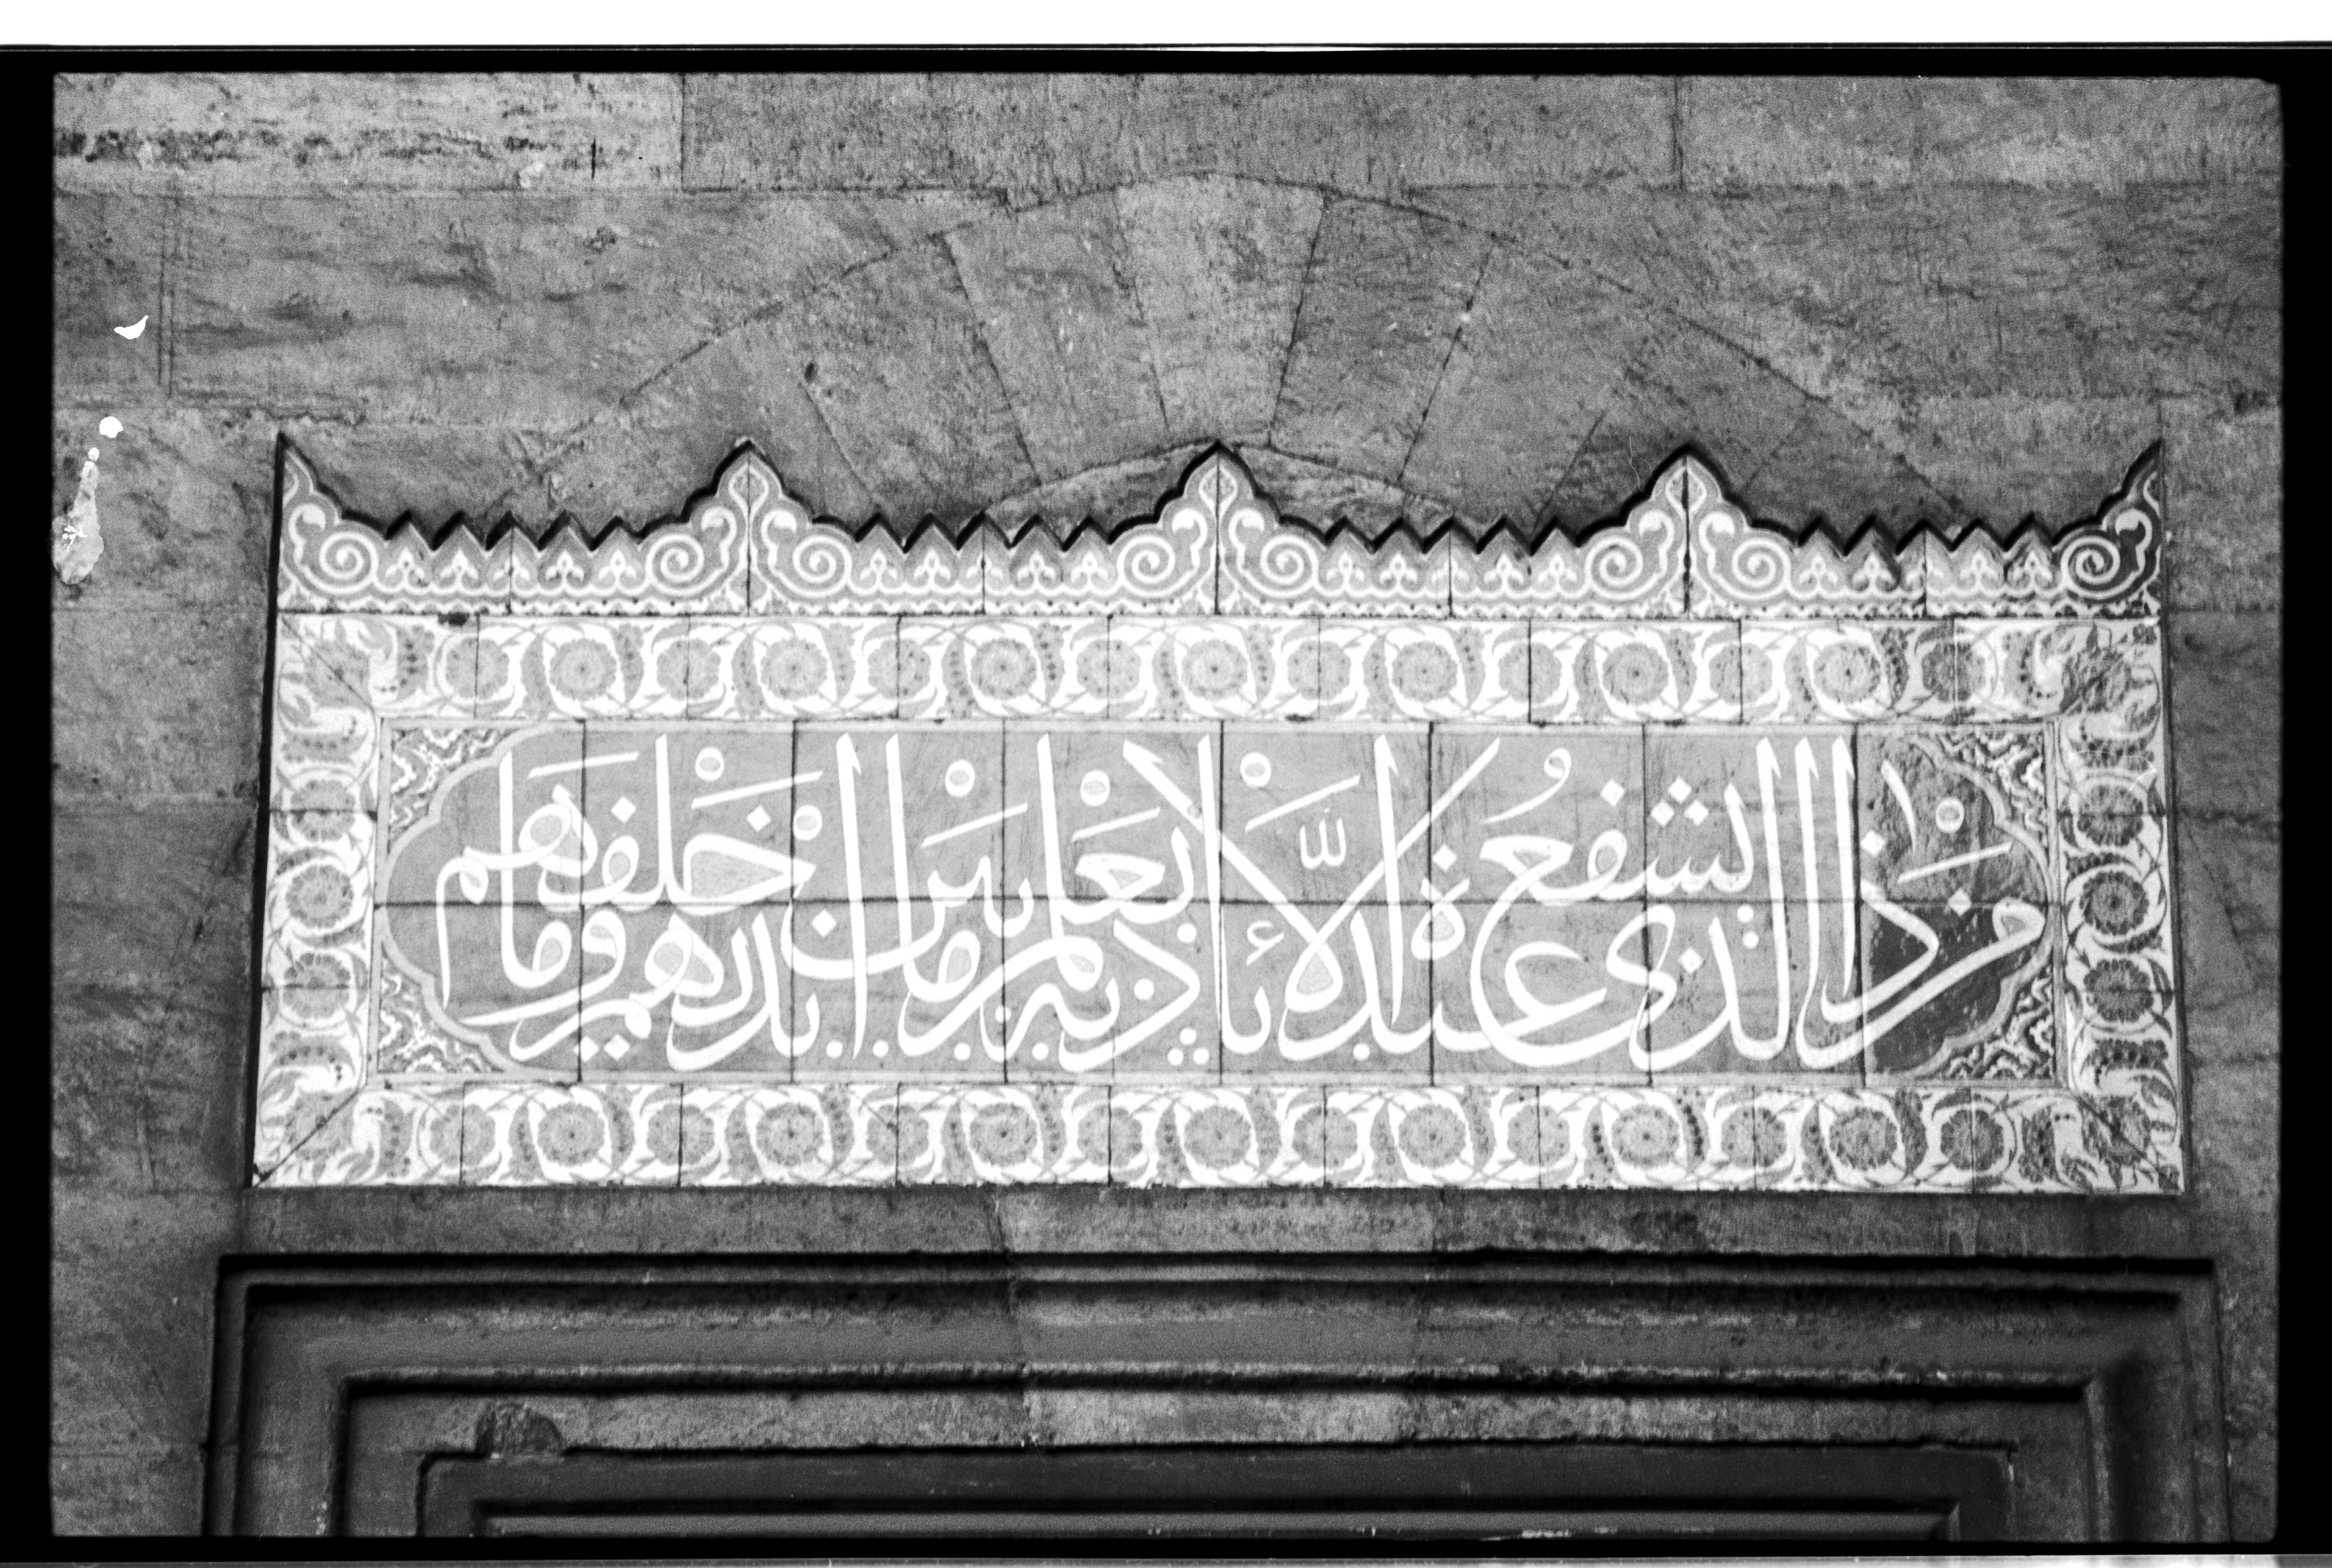 من ذا الذى يشفع عنده الا باذنه يعلم ما بين ايديهم وما خلفهم